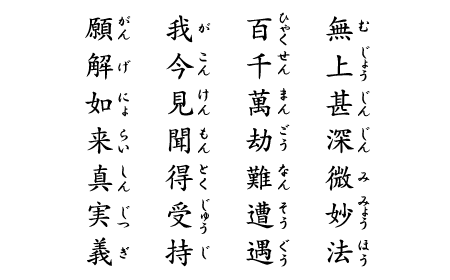 無上甚深微妙法
むじょうじんじんみみょうほう
百千萬劫難遭遇
ひゃくせんまんごうなんそうぐう
我今見聞得受持
がこんけんもんとくじゅうじ
願解如来真実義
がんげにょらいしんじつぎ